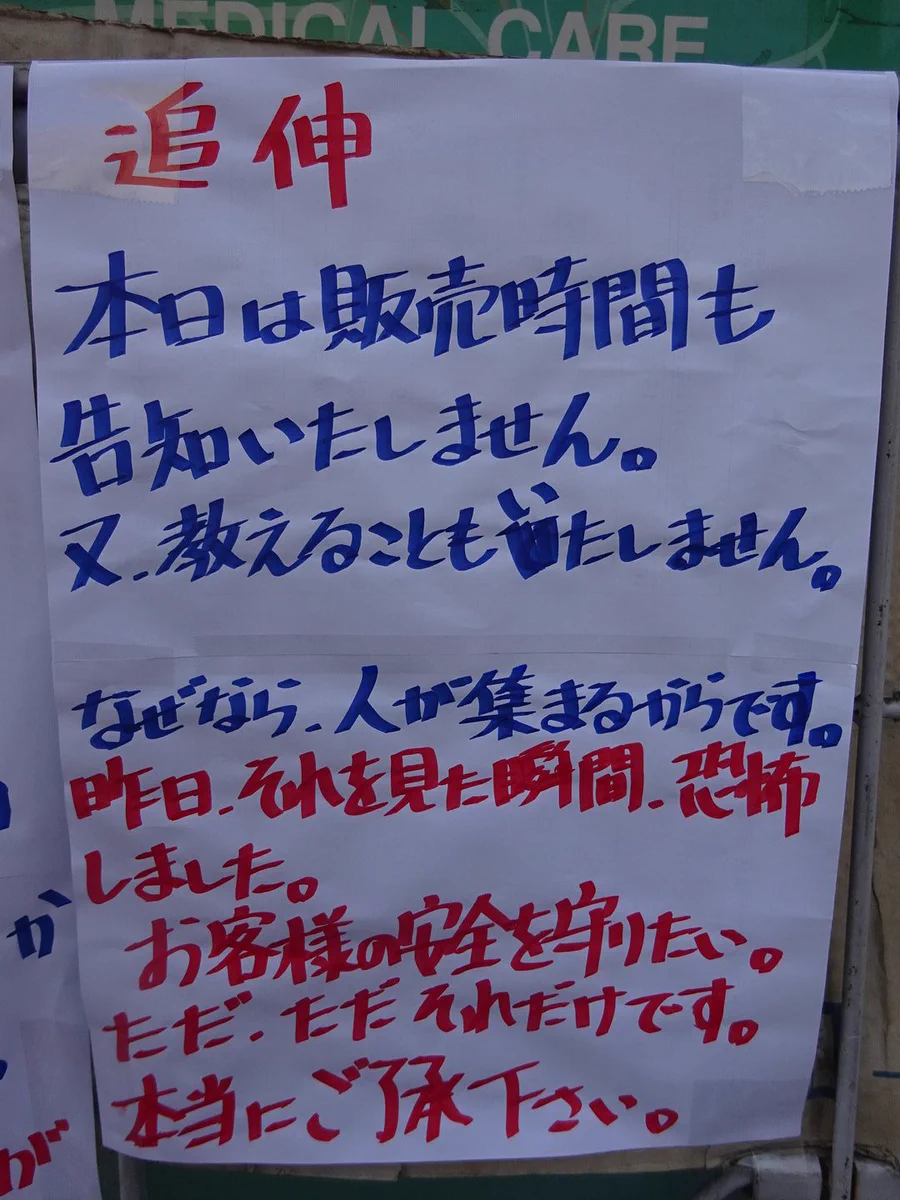 MEDICAL CARE
追伸
本日は販売時間も
告知いたしません。
又、教えることもいたしません。
なぜなら、人が集まるからです。
昨日、それを見た瞬間、恐怖
しました。
お客様の安全を守りたい。
ただ、ただそれだけです。
本当にご了承下さい。
か
が